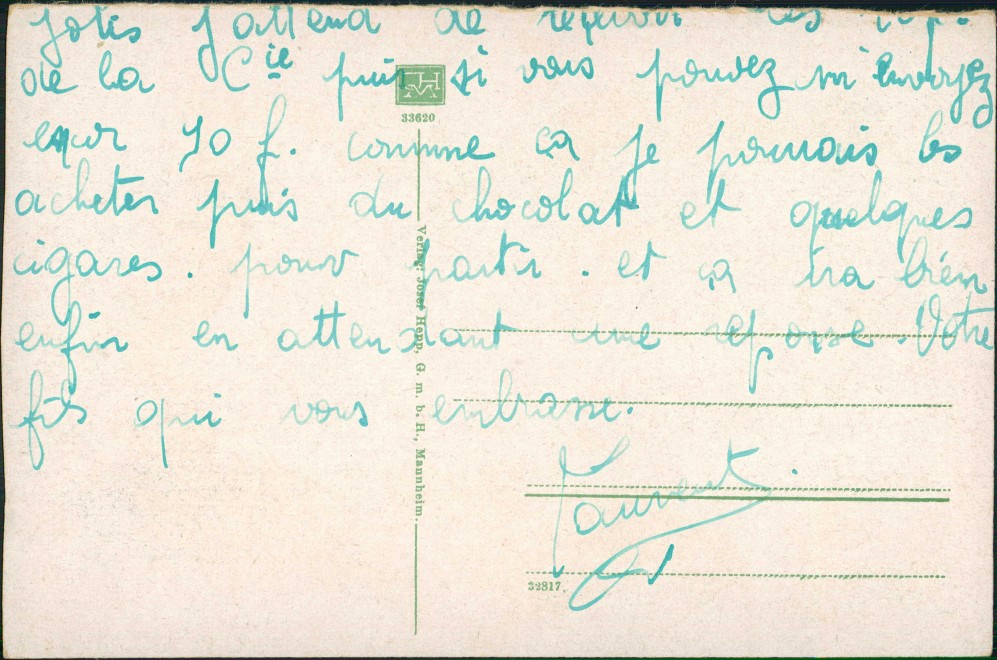 jolis j'attend de recevoir les
de la Cie puis si vous pouvez m'envoyez
encor 70 f. comme ça je pourrais les
acheter puis du chocolat et quelques
cigares. pour partir. et ça ira bien
enfin en attendant une reponse. Votre
fils qui vous embrasse.
Laurent
33620
Verlag: Josef Hepp, G. m. b. H., Mannheim.
32817.